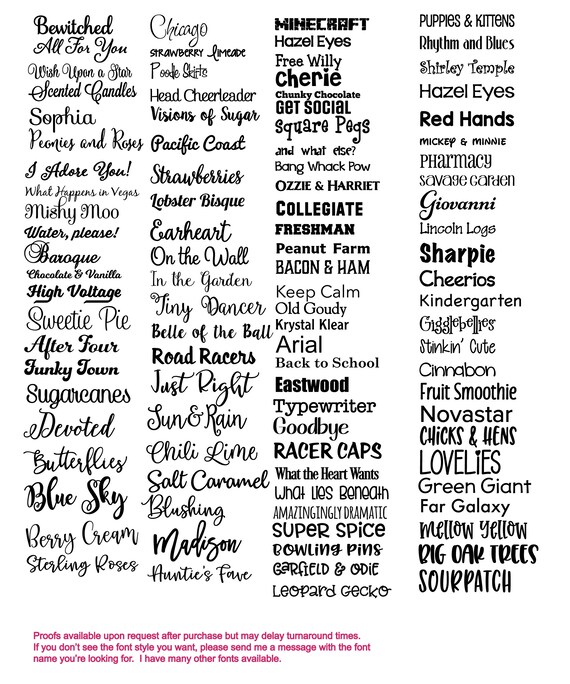 Bewitched
All For You
Wish Upon a Star
Scented Candles
Sophia
Peonies and Roses
I Adore You!
What Happens in Vegas
Mishy Moo
Water, please!
Baroque
Chocolate & Vanilla
High Voltage
Sweetie Pie
After Four
Funky Town
Sugarcanes
Devoted
Butterflies
Blue Sky
Berry Cream
Sterling Roses
Chicago
Strawberry Limeade
Poodle Skirts
Head Cheerleader
Visions of Sugar
Pacific Coast
Strawberries
Lobster Bisque
Earheart
On the Wall
In the Garden
Tiny Dancer
Belle of the Ball
Road Racers
Just Right
Sun & Rain
Chili Lime
Salt Caramel
Blushing
Madison
Auntie's Fave
MINECRAFT
Hazel Eyes
Free Willy
Cherie
Chunky Chocolate
GET SOCIAL
Square Pegs
and what else?
Bang Whack Pow
Ozzie & Harriet
COLLEGIATE
FRESHMAN
Peanut Farm
BACON & HAM
Keep Calm
Old Goudy
Krystal Klear
Arial
Back to School
Eastwood
Typewriter
Goodbye
RACER CAPS
What the Heart Wants
What Lies Beneath
AMAZINGINGLY DRAMATIC
SUPER SPICE
BOWLING PINS
GARFIELD & ODIE
Leopard Gecko
PUPPIES & KITTENS
Rhythm and Blues
Shirley Temple
Hazel Eyes
Red Hands
MICKEY & MINNIE
PHARMACY
Savage Garden
Giovanni
Lincoln Logs
Sharpie
Cheerios
Kindergarten
Gigglebellies
Stinkin' Cute
Cinnabon
Fruit Smoothie
Novastar
CHICKS & HENS
LOVELiES
Green Giant
Far Galaxy
Mellow Yellow
BIG OAK TREES
SOURPATCH
Proofs available upon request after purchase but may delay turnaround times.
If you don't see the font style you want, please send me a message with the font
name you're looking for.  I have many other fonts available.